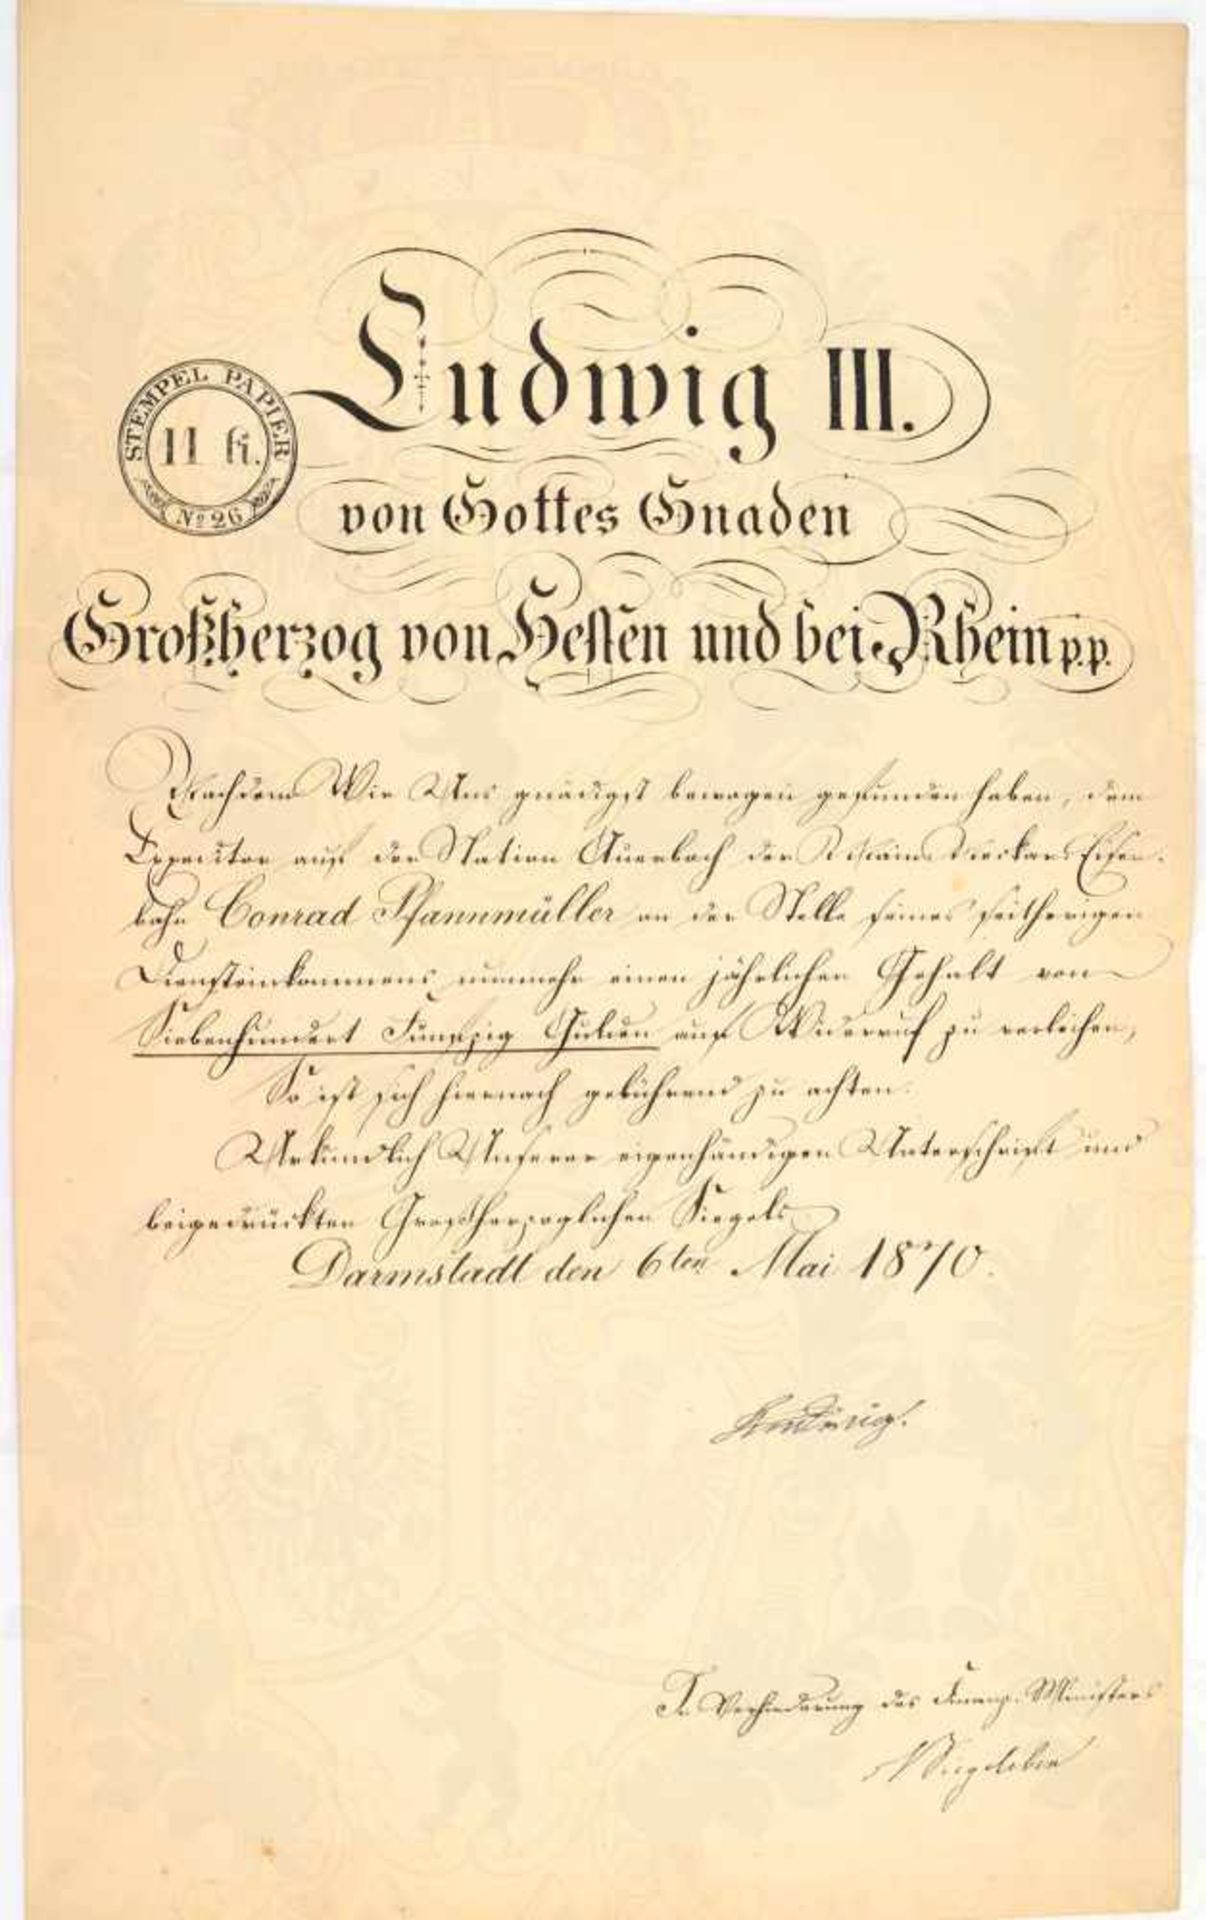 Ludwig III.
STEMPEL PAPIER
11 fl.
Nº 26
von Gottes Gnaden
Großherzog von Hessen und bei Rhein p.p.
Nachdem Wir Uns gnädigst bewogen gefunden haben, dem
Expeditor auf der Station Auerbach der Main-Neckar-Eisen-
bahn Conrad Pfannmüller an der Stelle seines seitherigen
Diensteinkommens nunmehr einen jährlichen Gehalt von
Siebenhundert Fünfzig Gulden auf Widerruf zu verleihen,
So ist sich hiernach gebührend zu achten.
Urkundlich Unserer eigenhändigen Unterschrift und
beigedrückten Großherzoglichen Siegels
Darmstadt den 6ten Mai 1870.
Ludwig.
In Verhinderung des Finanz-Ministers